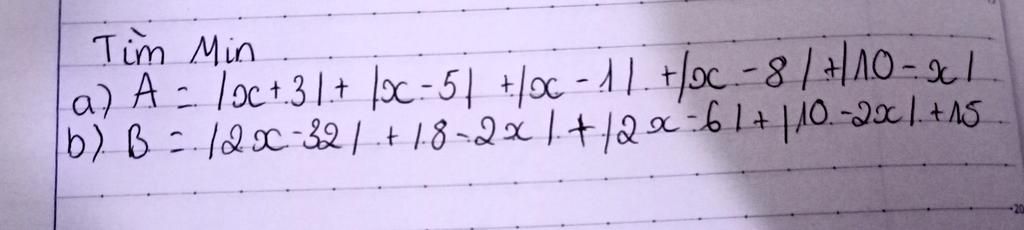 Tìm Min
a) A = |x+3| + |x-5| + |x-1| + |x-8| + |10-x|
b) B = |2x-32| + |8-2x| + |2x-6| + |10-2x| + 15
20